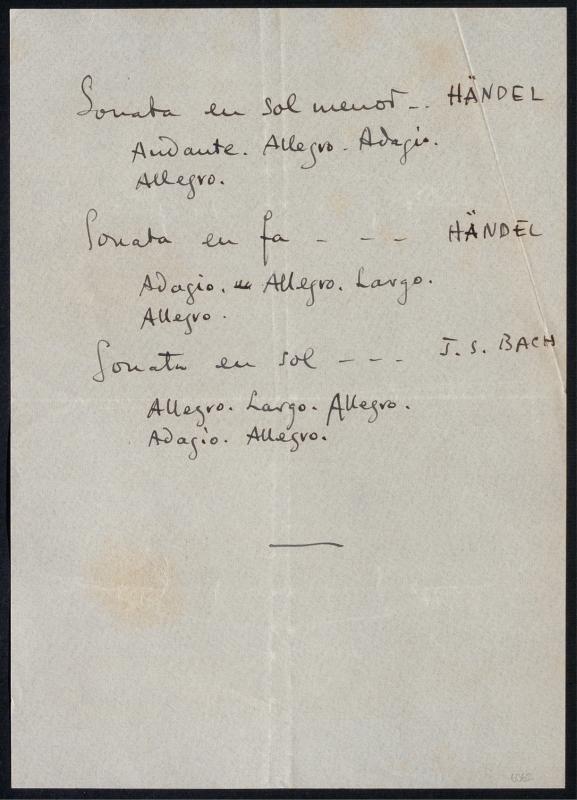 Sonata en sol menor -.. HÄNDEL
Andante. Allegro. Adagio.
Allegro.
Sonata en fa - - - HÄNDEL
Adagio. Allegro. Largo.
Allegro.
Sonata en sol - - - J. S. BACH
Allegro. Largo. Allegro.
Adagio. Allegro.